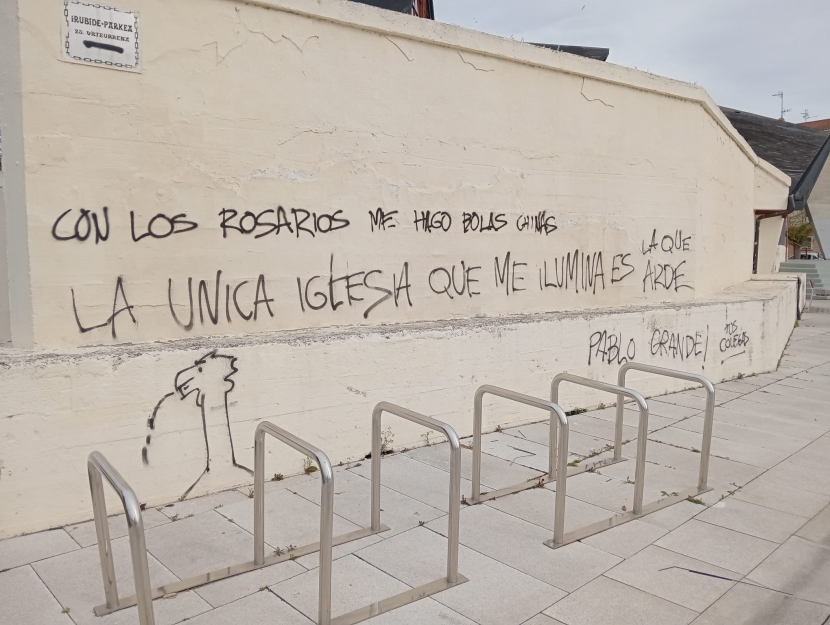 IRUBIDE·PARKEA
CON LOS ROSARIOS ME HAGO BOLAS CHINAS
LA UNICA IGLESIA QUE ME ILUMINA ES LA QUE ARDE
PABLO GRANDE! TOS COLEGAS